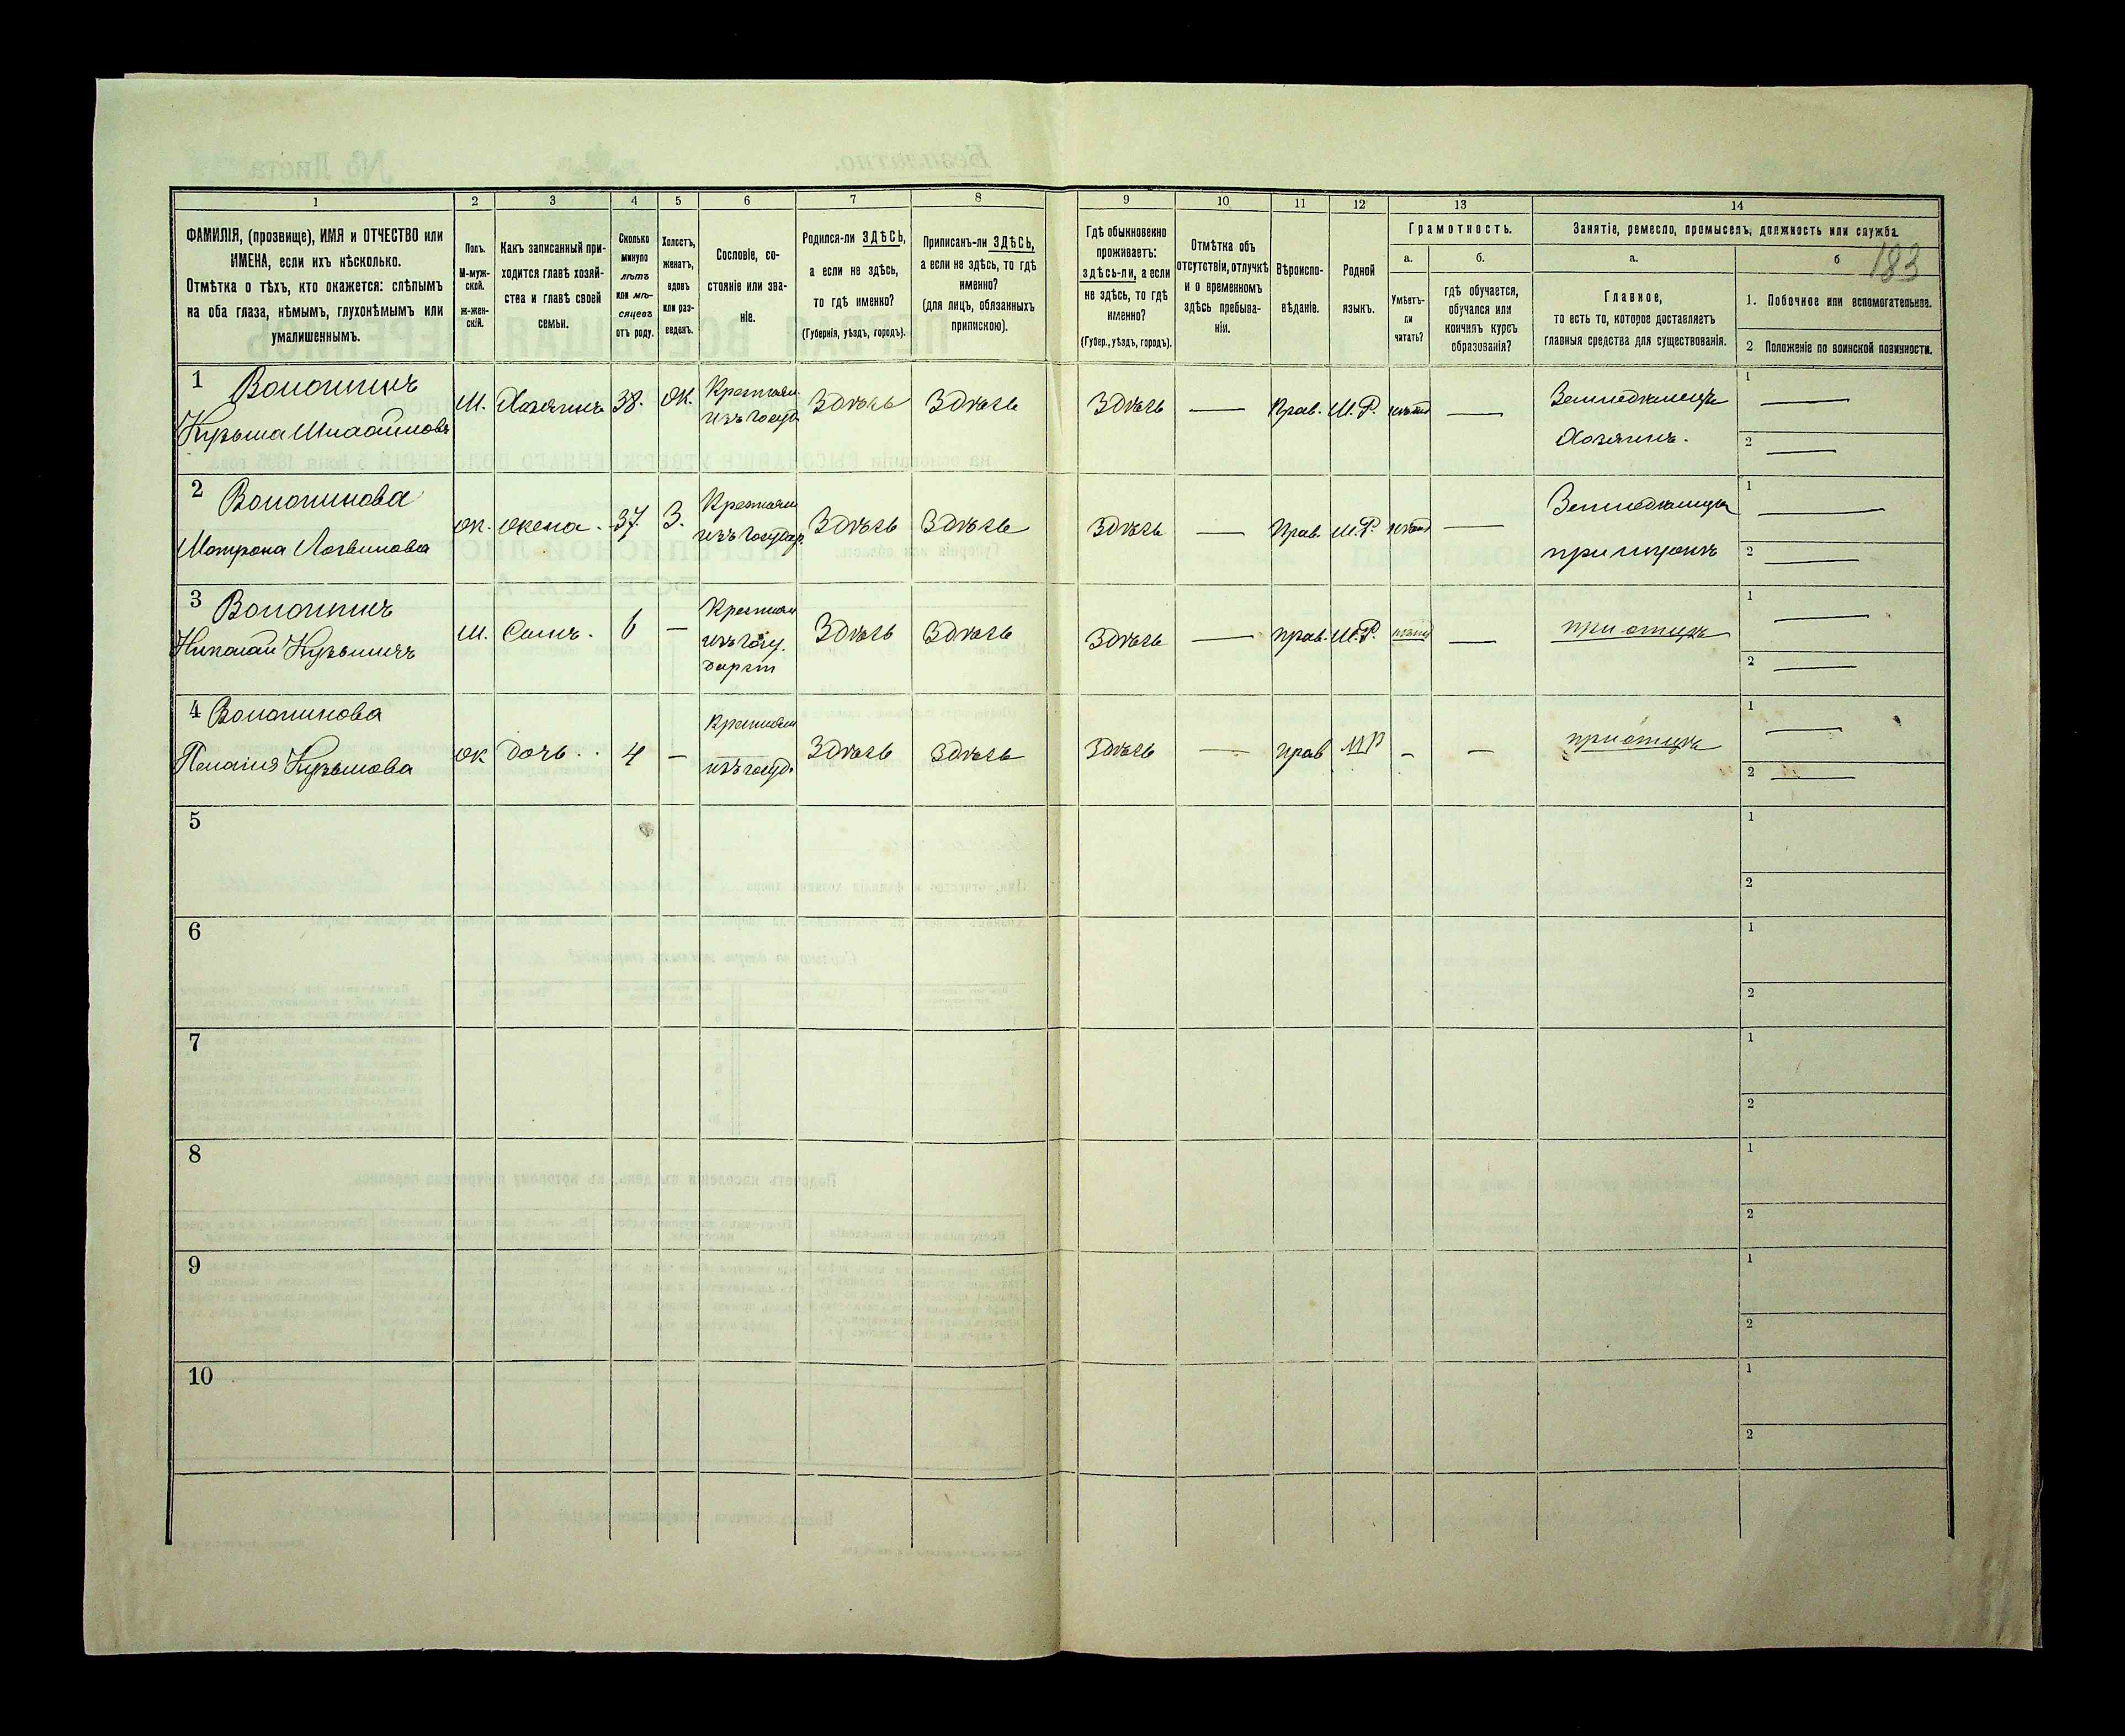 1 2 3 4 5 6 7 8 9 10 11 12 13 14
ФАМИЛІЯ, (прозвище), ИМЯ и ОТЧЕСТВО или
ИМЕНА, если ихъ нѣсколько.
Отмѣтка о тѣхъ, кто окажется: слѣпымъ
на оба глаза, нѣмымъ, глухонѣмымъ или
умалишеннымъ.
Полъ.
М-муж-
ской.
ж-жен-
скій.
Какъ записанный при-
ходится главѣ хозяй-
ства и главѣ своей
семьи.
Сколько
минуло
лѣтъ
или мѣ-
сяцевъ
отъ роду.
Холостъ,
женатъ,
вдовъ
или раз-
веденъ.
Сословіе, со-
стояніе или зва-
ніе.
Родился-ли ЗДѢСЬ,
а если не здѣсь,
то гдѣ именно?
(Губернія, уѣздъ, городъ).
Приписанъ-ли ЗДѢСЬ,
а если не здѣсь, то гдѣ
именно?
(для лицъ, обязанныхъ
припискою).
Гдѣ обыкновенно
проживаетъ:
здѣсь-ли, а если
не здѣсь, то гдѣ
именно?
(Губер., уѣздъ, городъ).
Отмѣтка объ
отсутствіи, отлучкѣ
и о временномъ
здѣсь пребыва-
ніи.
Вѣроиспо-
вѣданіе.
Родной
языкъ.
Грамотность.
а.
Умѣетъ-
ли
читать?
б.
гдѣ обучается,
обучался или
кончилъ курсъ
образованія?
Занятіе, ремесло, промыселъ, должность или служба.
а.
Главное,
то есть то, которое доставляетъ
главныя средства для существованія.
б
183
1. Побочное или вспомогательное.
2 Положеніе по воинской повинности.
1 Волошинъ
Кузьма
М. Хозяинъ 38. Ж. Крестьян. Здѣсь Здѣсь Здѣсь — Прав. М.Р. — Земледѣлецъ 1 —
изъ госуд. Хозяинъ. 2 —
2 Волошинова
Матрона Логвинова
ж. жена. 37. З. Крестьян Здѣсь Здѣсь Здѣсь — Прав. М.Р. — Земледѣлица 1 —
изъ государ. при мужѣ 2 —
3 Волошинъ
Николай Кузьмичъ
М. Сынъ. 6 — Крестьян Здѣсь Здѣсь Здѣсь — прав. М.Р. — при отцѣ 1 —
изъ госу.
дарст 2 —
4 Волошинова
Пелагія Кузьмова
ж дочь. 4 — Крестьян Здѣсь Здѣсь Здѣсь — прав МР — — при отцѣ 1 —
изъ госуд. 2 —
5 1
2
6 1
2
7 1
2
8 1
2
9 1
2
10 1
2